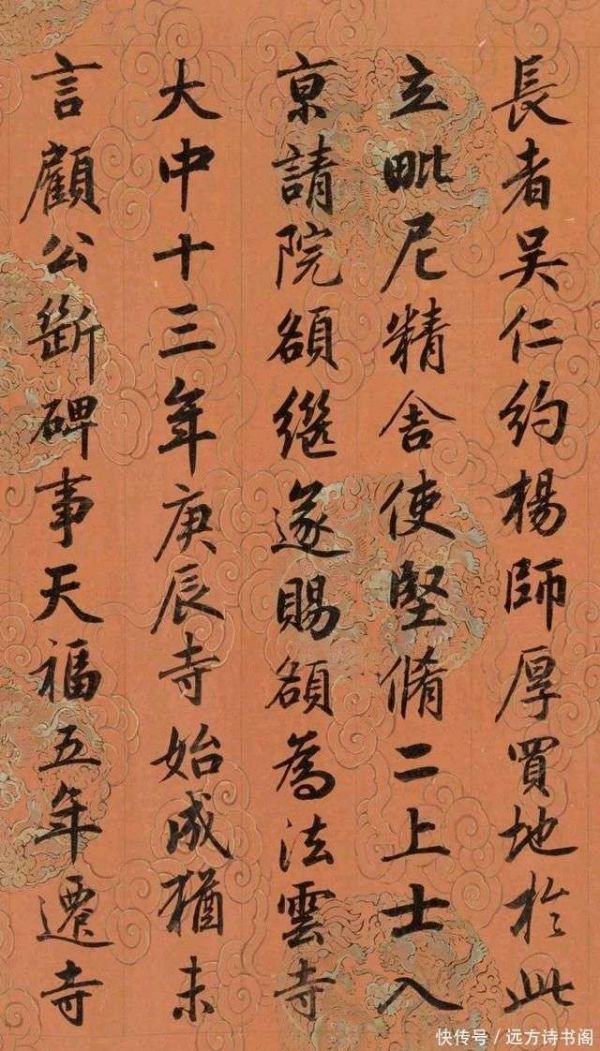 長者吴仁約楊師厚買地於此
立毗尼精舍使堅脩二上士入
京請院額繼遂賜額為法雲寺
大中十三年庚辰寺始成猶未
言顧公斷碑事天福五年遷寺
快传号/远方诗书阁